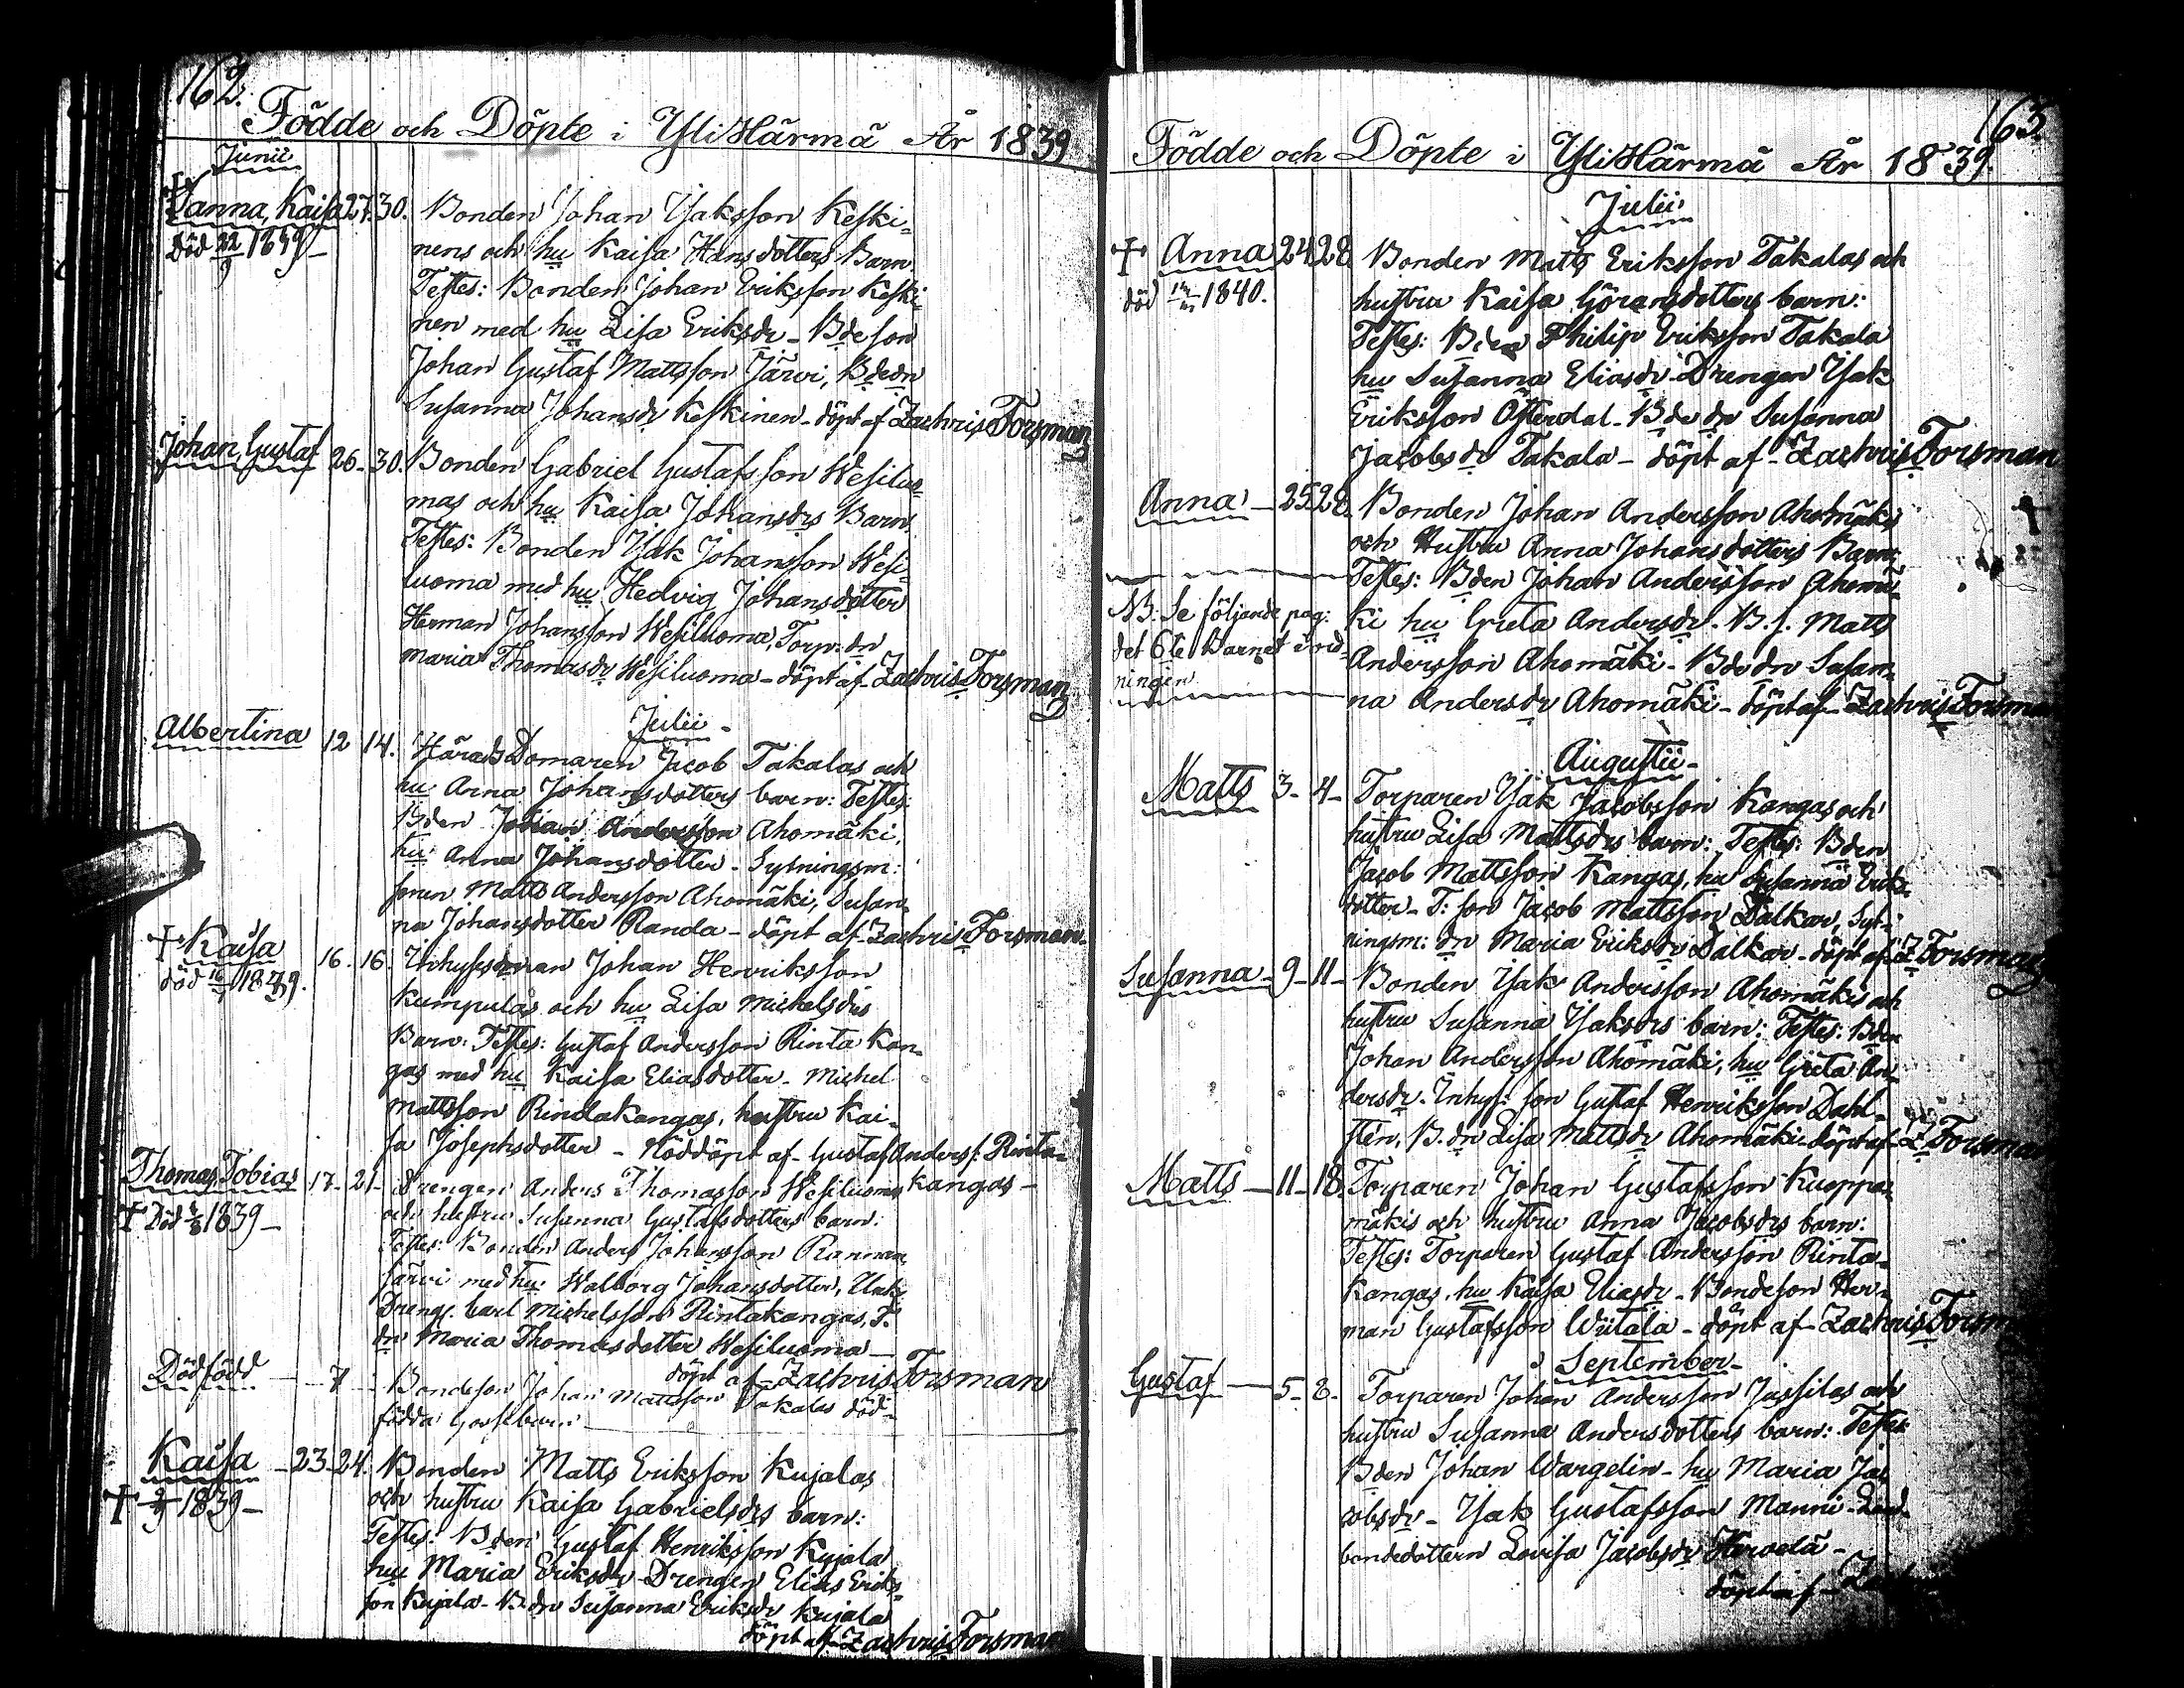 162.
Födde och Döpte i YliHärmä År 1839
Junii
Sanna, Kaisa 27. 30. Bonden Johan Isaksson Keski-
död 22/9 1839 – nens och hu Kaisa Hansdotters Barn.
Testes: Bonden Johan Eriksson Keski-
nen med hu Lisa Eriksdr – Bdeson
Johan Gustaf Mattsson Järvi, Bdedn
Susanna Johansdr Keskinen – döpt af Zachris Forsman
Johan Gustaf 26 – 30. Bonden Gabriel Gustafsson Wesiluo-
mas och hu Kaisa Johansdrs Barn.
Testes: Bonden Isak Johansson Wesi-
luoma med hu Hedvig Johansdotter
Herman Johansson Wesiluoma, Torp: dn
Maria Thomasdr Wesiluoma – döpt af Zachris Forsman
Julii –
Albertina 12 14. HäradsDomaren Jacob Takalas och
hu Anna Johansdotters barn: Testes:
Bden Johan Andersson Ahomäki,
hu Anna Johansdotter – Sytningsm:
sonen Matts Andersson Ahomäki, Susan-
na Johansdotter Randa – döpt af Zachris Forsman.
+ Kaisa 16. 16. Inhysesman Johan Henriksson
död 16/7 1839. Kumpulas och hu Lisa Michelsdrs
Barn. Testes: Gustaf Andersson Rinta Kan-
gas med hu Kaisa Eliasdotter – Michel
Mattsson Rindakangas, hustru Kai-
sa Josephsdotter – Nöddöpt af Gustaf Anderss: Rinta-
kangas –
Thomas Tobias 17 – 21 – Drengen Anders Thomasson Wesiluomas
+ Död 1839 – och hustru Susanna Gustafsdotters barn:
Testes: Bonden Anders Johansson Rannan-
järvi med hu Walborg Johansdotter,
Dreng. Carl Michelsson Rintakangas, T.
dn Maria Thomasdotter Wesiluoma –
döpt af Zachris Forsman
Dödfödd – 7 – Bondeson Johan Mattsson Takalas död-
födda Gossebarn
Kaisa – 23 – 24. Bonden Matts Eriksson Kujalas
+ 1839 – och hustru Kaisa Gabrielsdrs barn:
Testes: Bden Gustaf Henriksson Kujala
hu Maria Eriksdr – Drengen Elias Eriks-
son Kujala – B.dn Susanna Eriksdr Kujala
döpt af Zachris Forsman
163
Födde och Döpte i YliHärmä År 1839.
Julii
+ Anna 24 28 Bonden Matts Eriksson Takalas och
död 1840. hustru Kaisa Göransdotters barn:
Testes: Bden Philip Eriksson Takala
hu Susanna Eliasdr – Drengen Isak
Eriksson Österdal – Bdedn Susanna
Jacobsdr Takala – döpt af – Zachris Forsman
Anna – 25 28. Bonden Johan Andersson Ahomäkis
och Hustru Anna Johansdotters Barn:
Testes: Bden Johan Andersson Ahomä-
NB: Se följande pag: ki hu Greta Andersdr. B. s. Matts
det 6te Barnet i ord- Andersson Ahomäki – Bdedn Susan-
ningen. na Andersdr Ahomäki – döpt af Zachris Forsman
Augustii –
Matts 3 – 4 – Torparen Isak Jacobsson Kangas och
hustru Lisa Mattsdrs barn: Testes: Bden
Jacob Mattsson Kangas, hu Susanna Eriks-
dotter – T: son Jacob Mattsson Dalkar, Syt-
ningsm: dn Maria Eriksdr Dalkar – döpt af Z Forsman
Susanna – 9 – 11 – Bonden Isak Andersson Ahomäkis och
hustru Susanna Isaksdrs barn: Testes: Bden
Johan Andersson Ahomäki, hu Greta An-
dersdr. Inhys: son Gustaf Henriksson Dahl-
sten, B. dn Lisa Mattsdr Ahomäki döpt af Z. Forsman
Matts – 11 – 18. Torparen Johan Gustafsson Kuoppa-
mäkis och hustru Anna Jacobsdrs barn:
Testes: Torparen Gustaf Andersson Rinta-
kangas, hu Kaisa Eliasdr – Bondeson Her-
man Gustafsson Wiitala – döpt af Zachris Forsm
September –
Gustaf – 5 – 8. Torparen Johan Andersson Jussilas och
hustru Susanna Andersdotters barn: Testes
Bden Johan Wargelin – hu Maria Ja-
cobsdr – Isak Gustafsson Manni –
bondedottern Lovisa Jacobsdr –
döpt af –